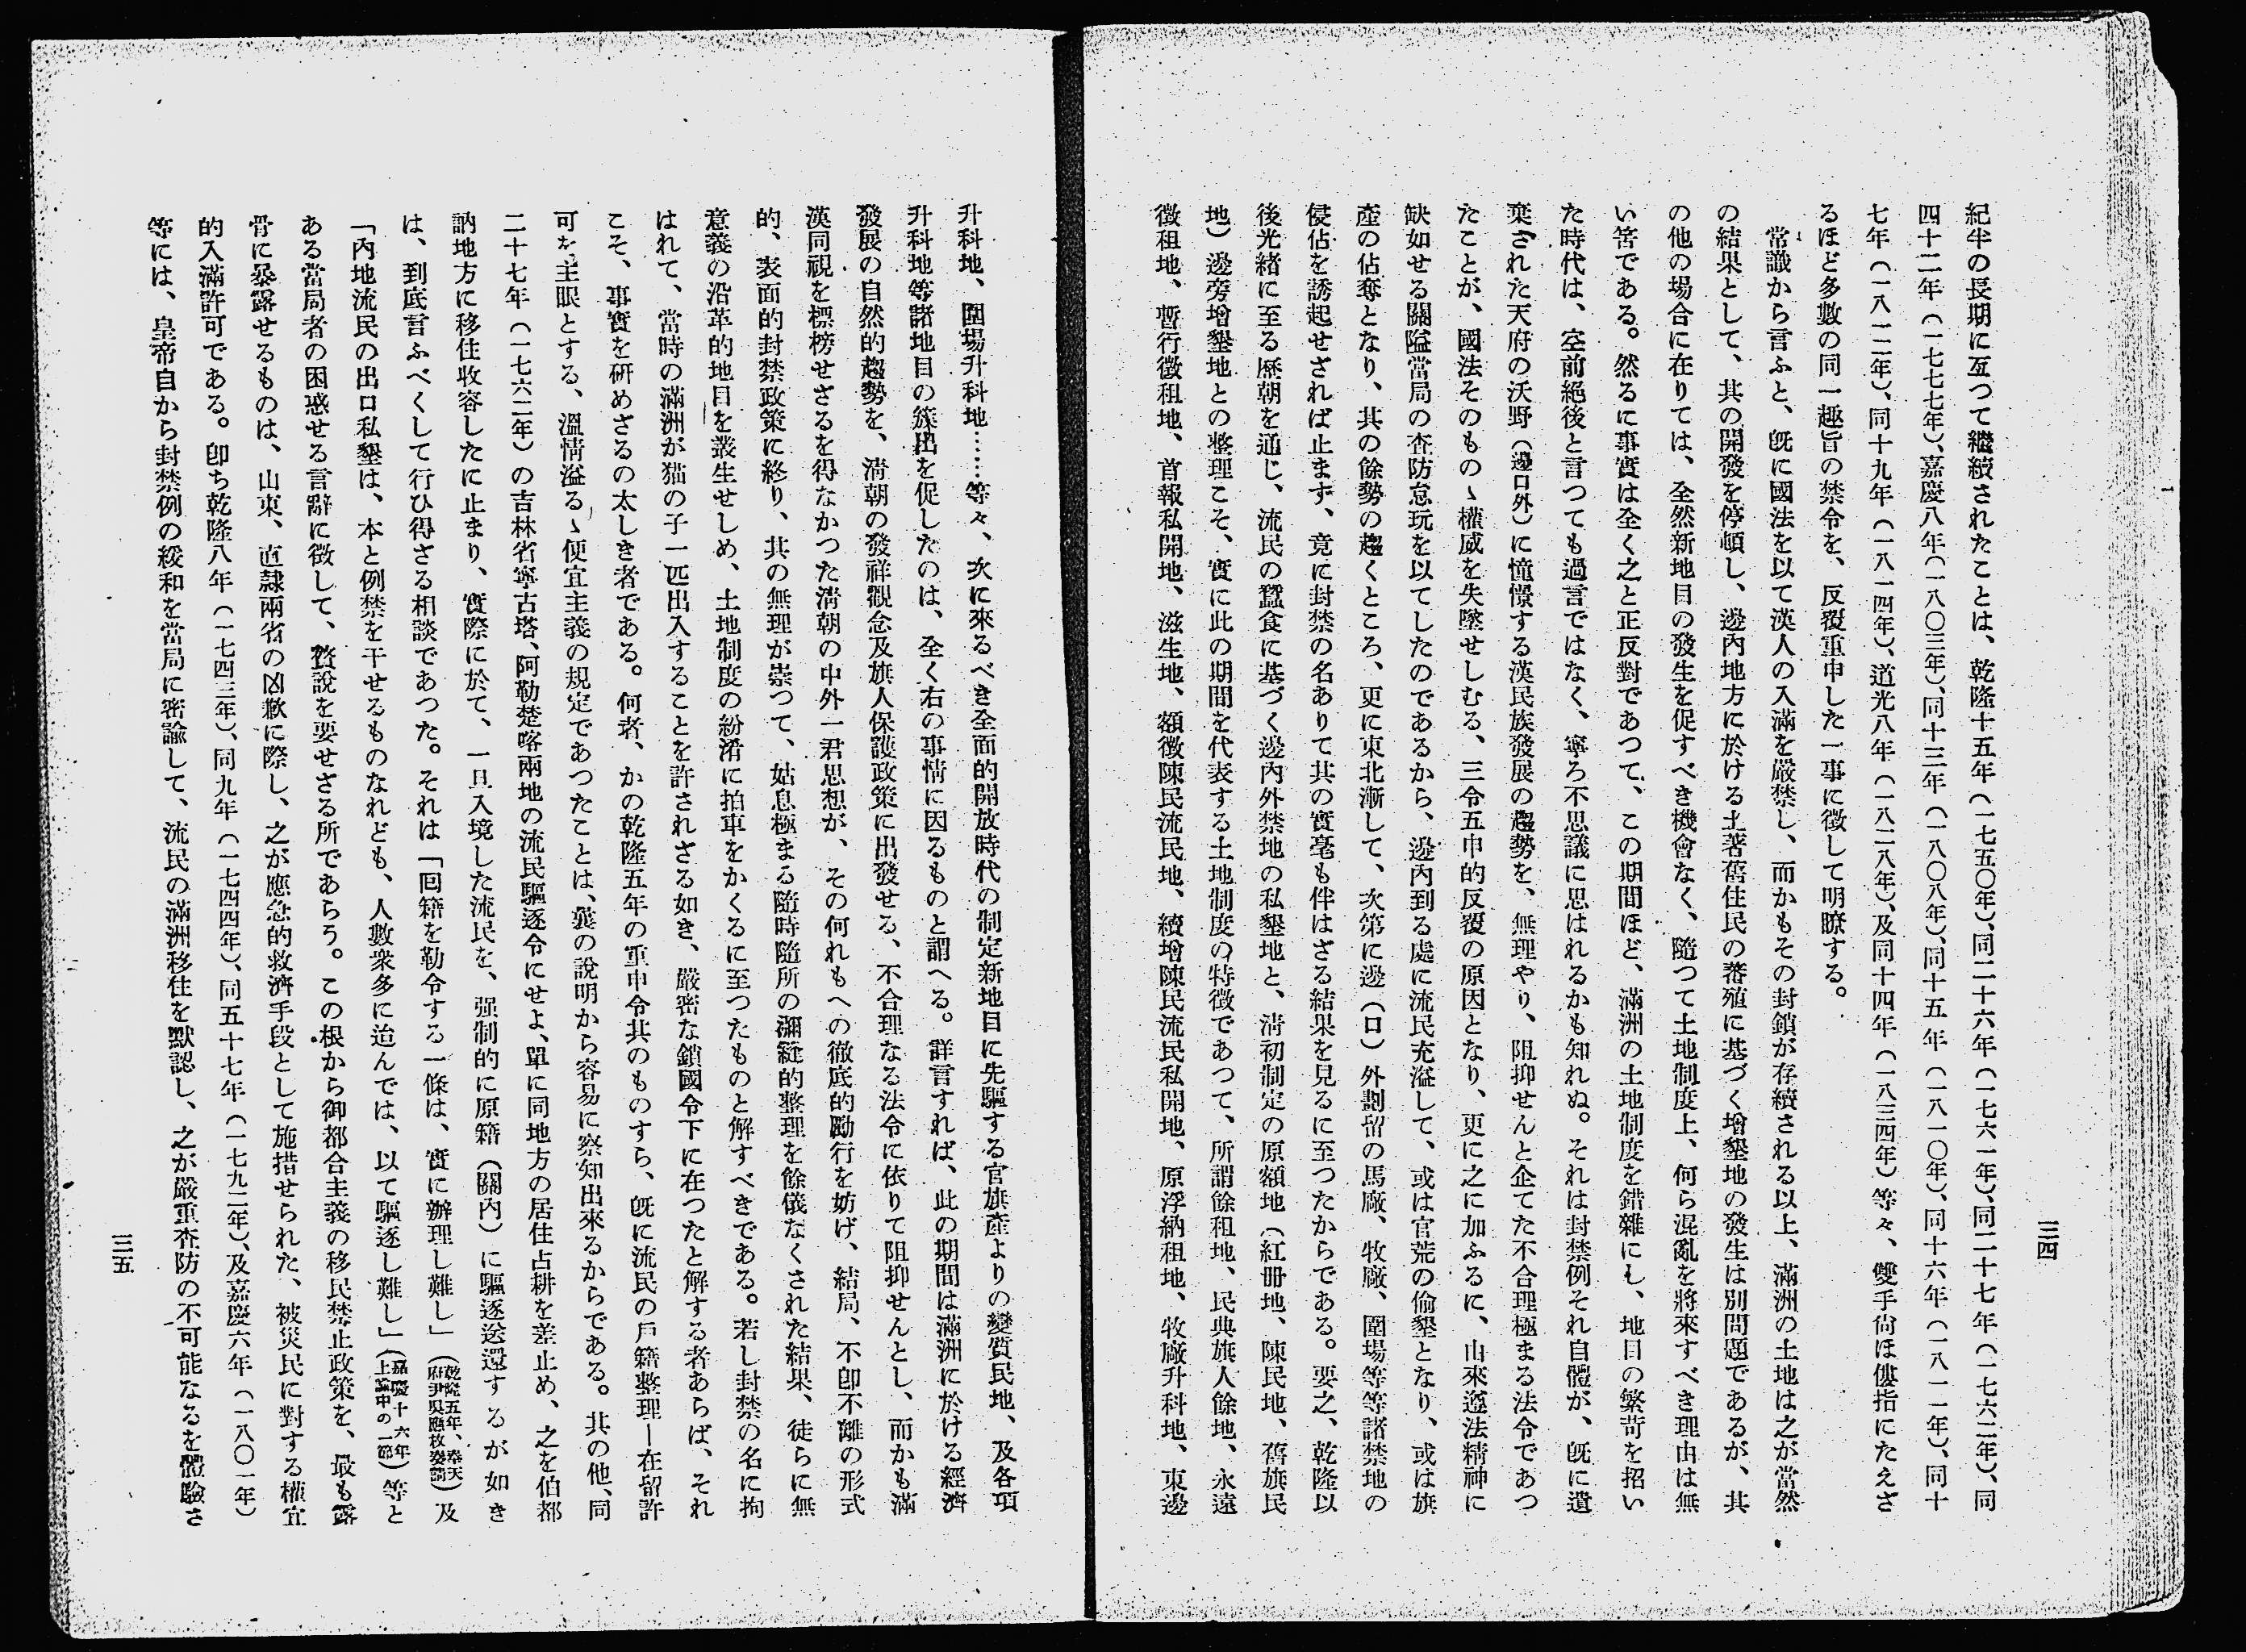 三四
紀半の長期に亙つて繼續されたことは、乾隆十五年(一七五〇年)、同二十六年(一七六一年)、同二十七年(一七六二年)、同
四十二年(一七七七年)、嘉慶八年(一八〇三年)、同十三年(一八〇八年)、同十五年(一八一〇年)、同十六年(一八一一年)、同十
七年(一八一二年)、同十九年(一八一四年)、道光八年(一八二八年)、及同十四年(一八三四年)等々、雙手尙ほ僂指にたえざ
るほど多數の同一趣旨の禁令を、反覆重申した一事に徵して明瞭する。
常識から言ふと、旣に國法を以て漢人の入滿を嚴禁し、而かもその封鎖が存續される以上、滿洲の土地は之が當然
の結果として、其の開發を停頓し、邊內地方に於ける土著舊住民の蕃殖に基づく增墾地の發生は別問題であるが、其
の他の場合に在りては、全然新地目の發生を促すべき機會なく、隨つて土地制度上、何ら混亂を將來すべき理由は無
い筈である。然るに事實は全く之と正反對であつて、この期間ほど、滿洲の土地制度を錯雜にし、地目の繁苛を招い
た時代は、空前絕後と言つても過言ではなく、寧ろ不思議に思はれるかも知れぬ。それは封禁例それ自體が、旣に遺
棄された天府の沃野(邊口外)に憧憬する漢民族發展の趨勢を、無理やり、阻抑せんと企てた不合理極まる法令であつ
たことが、國法そのものゝ權威を失墜せしむる、三令五申的反覆の原因となり、更に之に加ふるに、由來遵法精神に
缺如せる關隘當局の査防怠玩を以てしたのであるから、邊內到る處に流民充溢して、或は官荒の偷墾となり、或は旗
產の佔奪となり、其の餘勢の趨くところ、更に東北漸して、次第に邊(口)外劃留の馬廠、牧廠、圍場等等諸禁地の
侵佔を誘起せざれば止まず、竟に封禁の名ありて其の實毫も伴はざる結果を見るに至つたからである。要之、乾隆以
後光緖に至る歷朝を通じ、流民の蠶食に基づく邊內外禁地の私墾地と、淸初制定の原額地(紅册地、陳民地、舊旗民
地)邊旁增墾地との整理こそ、實に此の期間を代表する土地制度の特徵であつて、所謂餘租地、民典旗人餘地、永遠
徵租地、暫行徵租地、首報私開地、滋生地、額徵陳民流民地、續增陳民流民私開地、原浮納租地、牧廠升科地、東邊
升科地、圍場升科地……等々、次に來るべき全面的開放時代の制定新地目に先驅する官旗產よりの變質民地、及各項
升科地等諸地目の簇出を促したのは、全く右の事情に因るものと謂へる。詳言すれば、此の期間は滿洲に於ける經濟
發展の自然的趨勢を、淸朝の發祥觀念及旗人保護政策に出發せる、不合理なる法令に依りて阻抑せんとし、而かも滿
漢同視を標榜せざるを得なかつた淸朝の中外一君思想が、その何れもへの徹底的勵行を妨げ、結局、不卽不離の形式
的、表面的封禁政策に終り、其の無理が祟つて、姑息極まる隨時隨所の瀰縫的整理を餘儀なくされた結果、徒らに無
意義の沿革的地目を叢生せしめ、土地制度の紛淆に拍車をかくるに至つたものと解すべきである。若し封禁の名に拘
はれて、當時の滿洲が猫の子一匹出入することを許されざる如き、嚴密な鎖國令下に在つたと解する者あらば、それ
こそ、事實を硏めざるの太しき者である。何者、かの乾隆五年の重申令其のものすら、旣に流民の戶籍整理ー在留許
可を主眼とする、溫情溢るゝ便宜主義の規定であつたことは、曩の說明から容易に察知出來るからである。其の他、同
二十七年(一七六二年)の吉林省寧古塔、阿勒楚喀兩地の流民驅逐令にせよ、單に同地方の居住占耕を差止め、之を伯都
訥地方に移住收容したに止まり、實際に於て、一旦入境した流民を、强制的に原籍(關內)に驅逐送還するが如き
は、到底言ふべくして行ひ得ざる相談であつた。それは「回籍を勒令する一條は、實に辦理し難し」(乾隆五年、奉天府尹吳應枚奏請)及
「內地流民の出口私墾は、本と例禁を干せるものなれども、人數衆多に迨んでは、以て驅逐し難し」(嘉慶十六年上諭中の一節)等と
ある當局者の困惑せる言辭に徵して、贅說を要せざる所であらう。この根から御都合主義の移民禁止政策を、最も露
骨に暴露せるものは、山東、直隸兩省の凶歉に際し、之が應急的救濟手段として施措せられた、被災民に對する權宜
的入滿許可である。卽ち乾隆八年(一七四三年)、同九年(一七四四年)、同五十七年(一七九二年)、及嘉慶六年(一八〇一年)
等には、皇帝自から封禁例の緩和を當局に密諭して、流民の滿洲移住を默認し、之が嚴重査防の不可能なるを體驗さ
三五